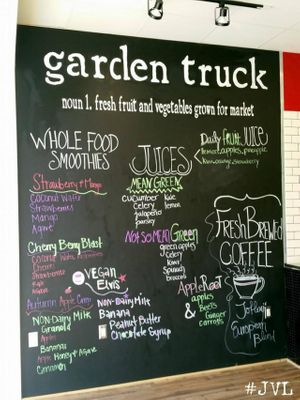 garden truck
noun 1. fresh fruit and vegetables grown for market
WHOLE FOOD
SMOOTHIES
Strawberry & Mango
Coconut Water
Strawberries
Mango
Agave
Cherry Berry Blast
Coconut Water
Cherries
Strawberries
Agave
Autumn Apple Crisp
Non-Dairy Milk
Granola
Apples
Bananas
Honey & Agave
Cinnamon
VEGAN
Elvis
Non-Dairy Milk
Banana
Peanut Butter
Chocolate Syrup
JUICES
MEAN GREEN
cucumber
Celery
jalapeño
parsley
Kale
lemon
Not So MEAN Green
green apples
Celery
Kiwi
Spinach
broccoli
Apple Root
apples
&
Beets
Ginger
carrots
Daily FRUIT JUICE
lemon, apples, pineapple
Kiwi, orange, strawberry
Fresh Brewed
COFFEE
European
Blend
#JVL